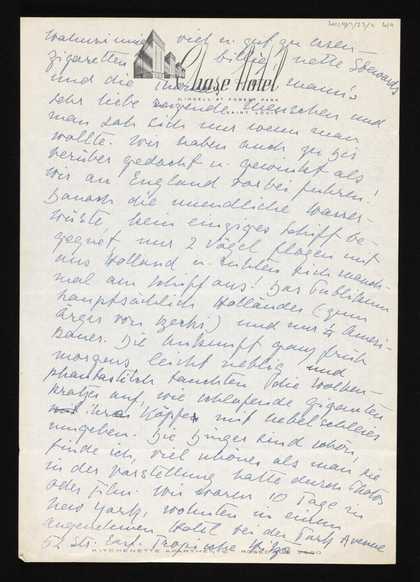 viel u. gut zu essen -
Zigaretten billig nette Stewards
Chase Hotel
und die
sehr liebe Menschen und
man sah sich nur wenn man
wollte. Wir haben auch zu Dir
herüber gedacht u. gewinkt als
wir an England vorbei fuhren!
Danach die unendliche Wasser-
wüste kein einziges Schiff be-
gegnet nur 2 Vögel flogen mit
aus Holland u. ruhten sich manch-
mal am Schiff aus! Das Publikum
hauptsächlich Holländer (zum
Ärger von ) und nur 4 Ameri-
kaner. Die Ankunft ganz früh
morgens leicht neblig und
phantastisch tauchten die Wolken-
kratzer auf, wie schlafende Giganten
ihre Köpfe mit Nebelschleier
umgeben. Die Dinger sind schön,
finde ich, viel schöner als man sie
in der Vorstellung hatte durch Photos
oder Film. Wir waren 10 Tage in
New York, wohnten in einem
angenehmen Hotel bei der Park Avenue
52 Str. East. Tropische Hitze